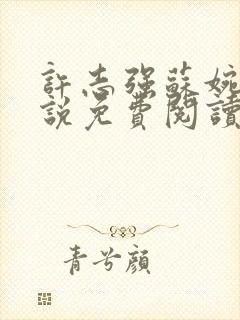 許志强蘇婉
說免費閱讀
青兮顏